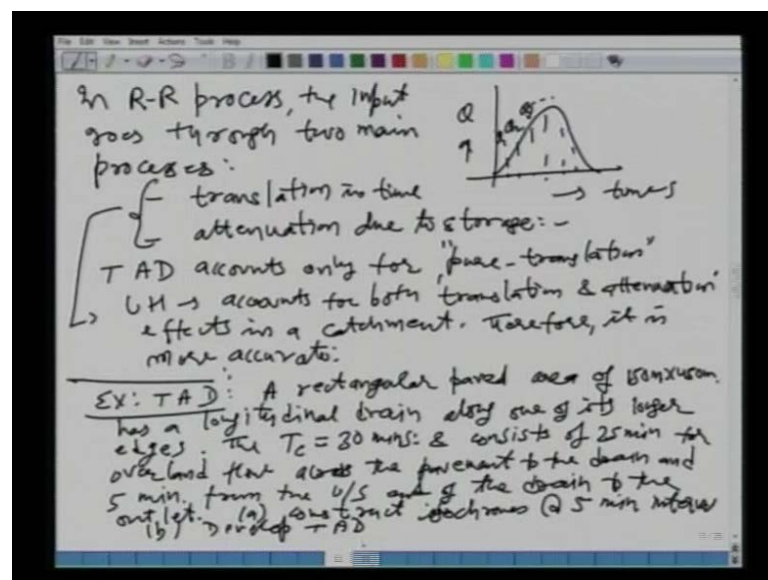 File Edit View Insert Actions Tools Help
In R-R process, the input
goes through two main
processes:
Q
→ time
- translation in time
- attenuation due to storage:-
TAD accounts only for "pure-translation"
UH → accounts for both "translation & attenuation"
effects in a catchment. Therefore, it is
more accurate:
EX: TAD: A rectangular paved area of
has a longitudinal drain along one of its longer
edges. The Tc = 30 mins: & consists of 25 min for
overland flow across the pavement to the drain and
5 min. from the U/S end of the drain to the
outlet. (a) construct isochrones @ 5 min interval
(b) Develop TAD